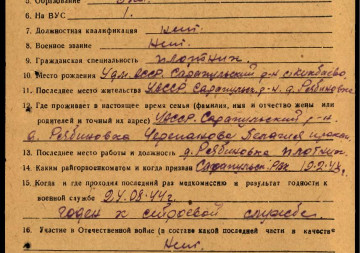 5. Образование
6. На ВУС 1.
7. Должностная квалификация Нет.
8. Военное звание Нет.
9. Гражданская специальность плотник.
10. Место рождения Удм. АССР. Сарапульский р-н
11. Последнее место жительства УАССР. Сарапульск. р-н. д. Рябиновка
12. Где проживает в настоящее время семья (фамилия, имя и отчество жены или
родителей и точный их адрес) УАССР. Сарапульский р-н
д. Рябиновка Черепанова
13. Последнее место работы и должность д. Рябиновка плотник.
14. Каким райгорвоенкоматом и когда призван Сарапульск. РВК 10.2.43г.
15. Когда и где проходил последний раз медкомиссию и результат годности к
военной службе 24.08.44г.
годен к строевой службе.
16. Участие в Отечественной войне (в составе какой последней части и качестве
Нет.